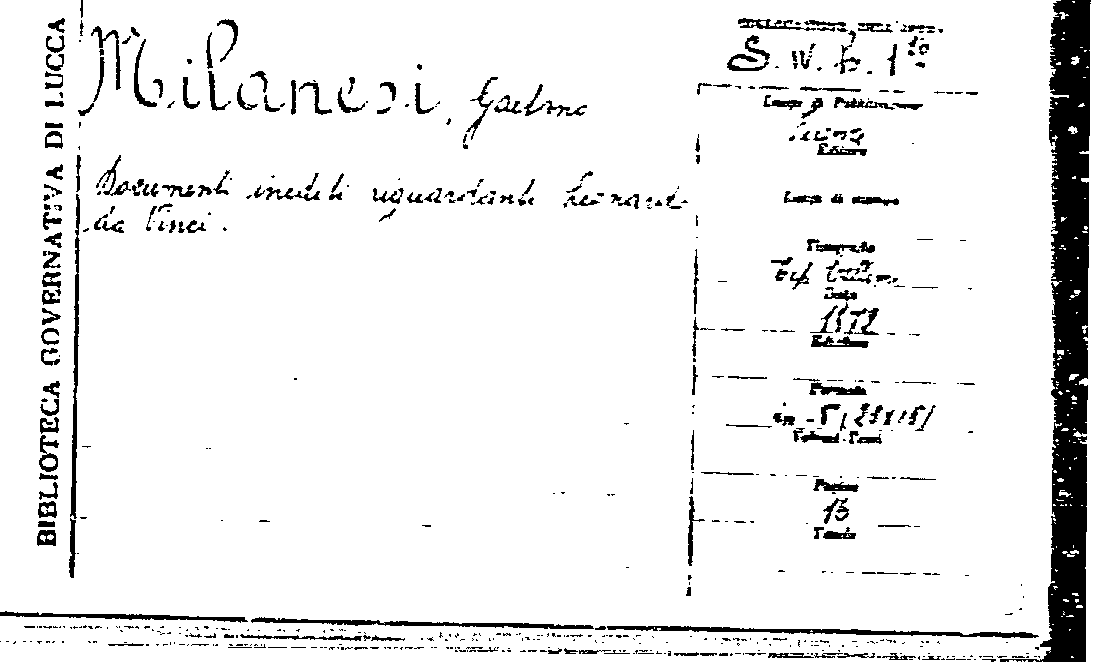 BIBLIOTECA GOVERNATIVA DI LUCCA
Milanesi, Gaetano
Documenti inediti riguardanti Leonardo
da Vinci.
COLLOCAZIONE DELL'OPERA
S. W. b. 1
Luogo di Pubblicazione
Editore
Luogo di stampa
Tipografo
Tip.
Data
1872
Edizione
Formato
in -
Volumi-Tomi
Pagine
13
Tavole